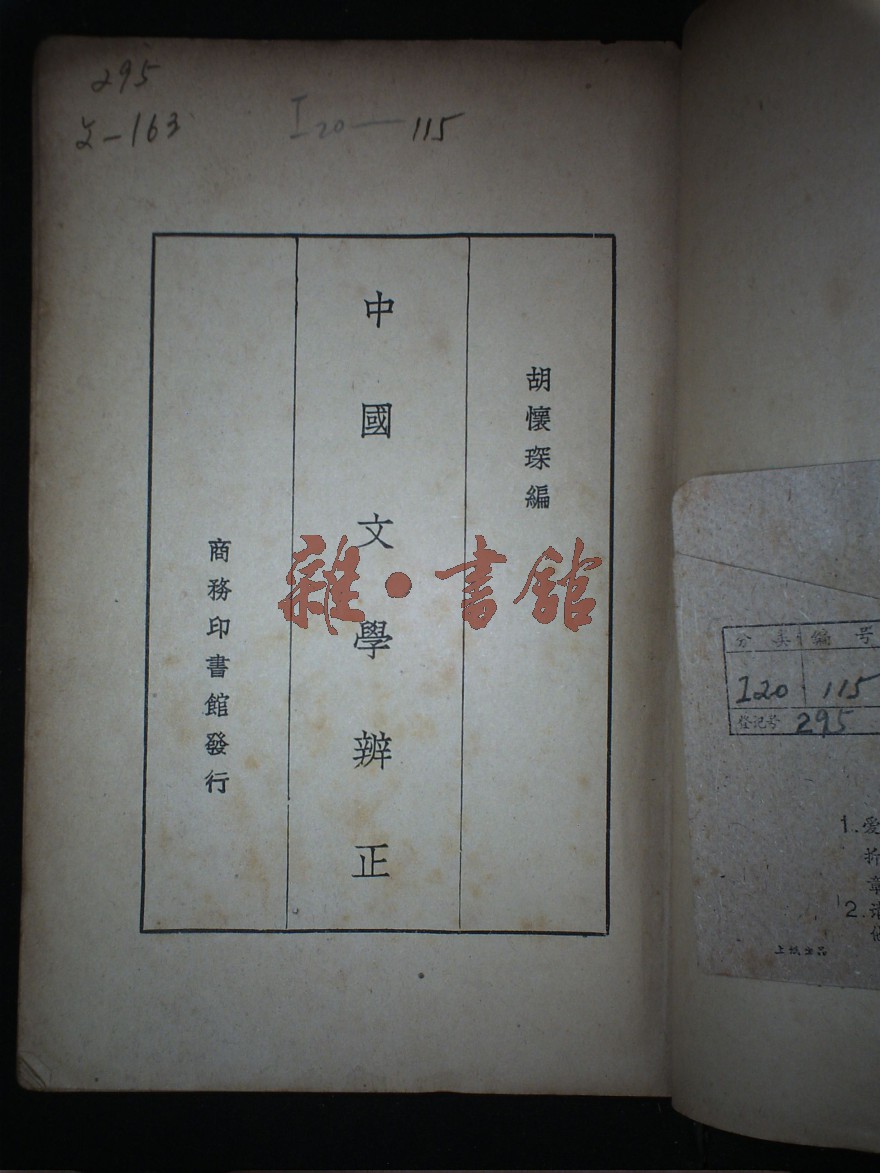 295
I20—115
胡懷琛編
中國文學辨正
商務印書館發行
雜·書館
分类 編号
I20 115
登记号 295
1.爱
折
章
2.
上坂出品